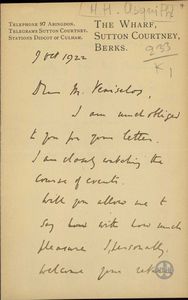 [H. H. Asquith]
TELEPHONE 97 ABINGDON.
TELEGRAMS SUTTON COURTNEY.
STATIONS DIDCOT OR CULHAM.
THE WHARF,
SUTTON COURTNEY,
BERKS.
933
K1
9 Oct 1922
Dear M. Venizelos,
I am much obliged
to you for your letter.
I am closely watching the
course of events.
Will you allow me to
say how with how much
pleasure I, personally,
welcome your